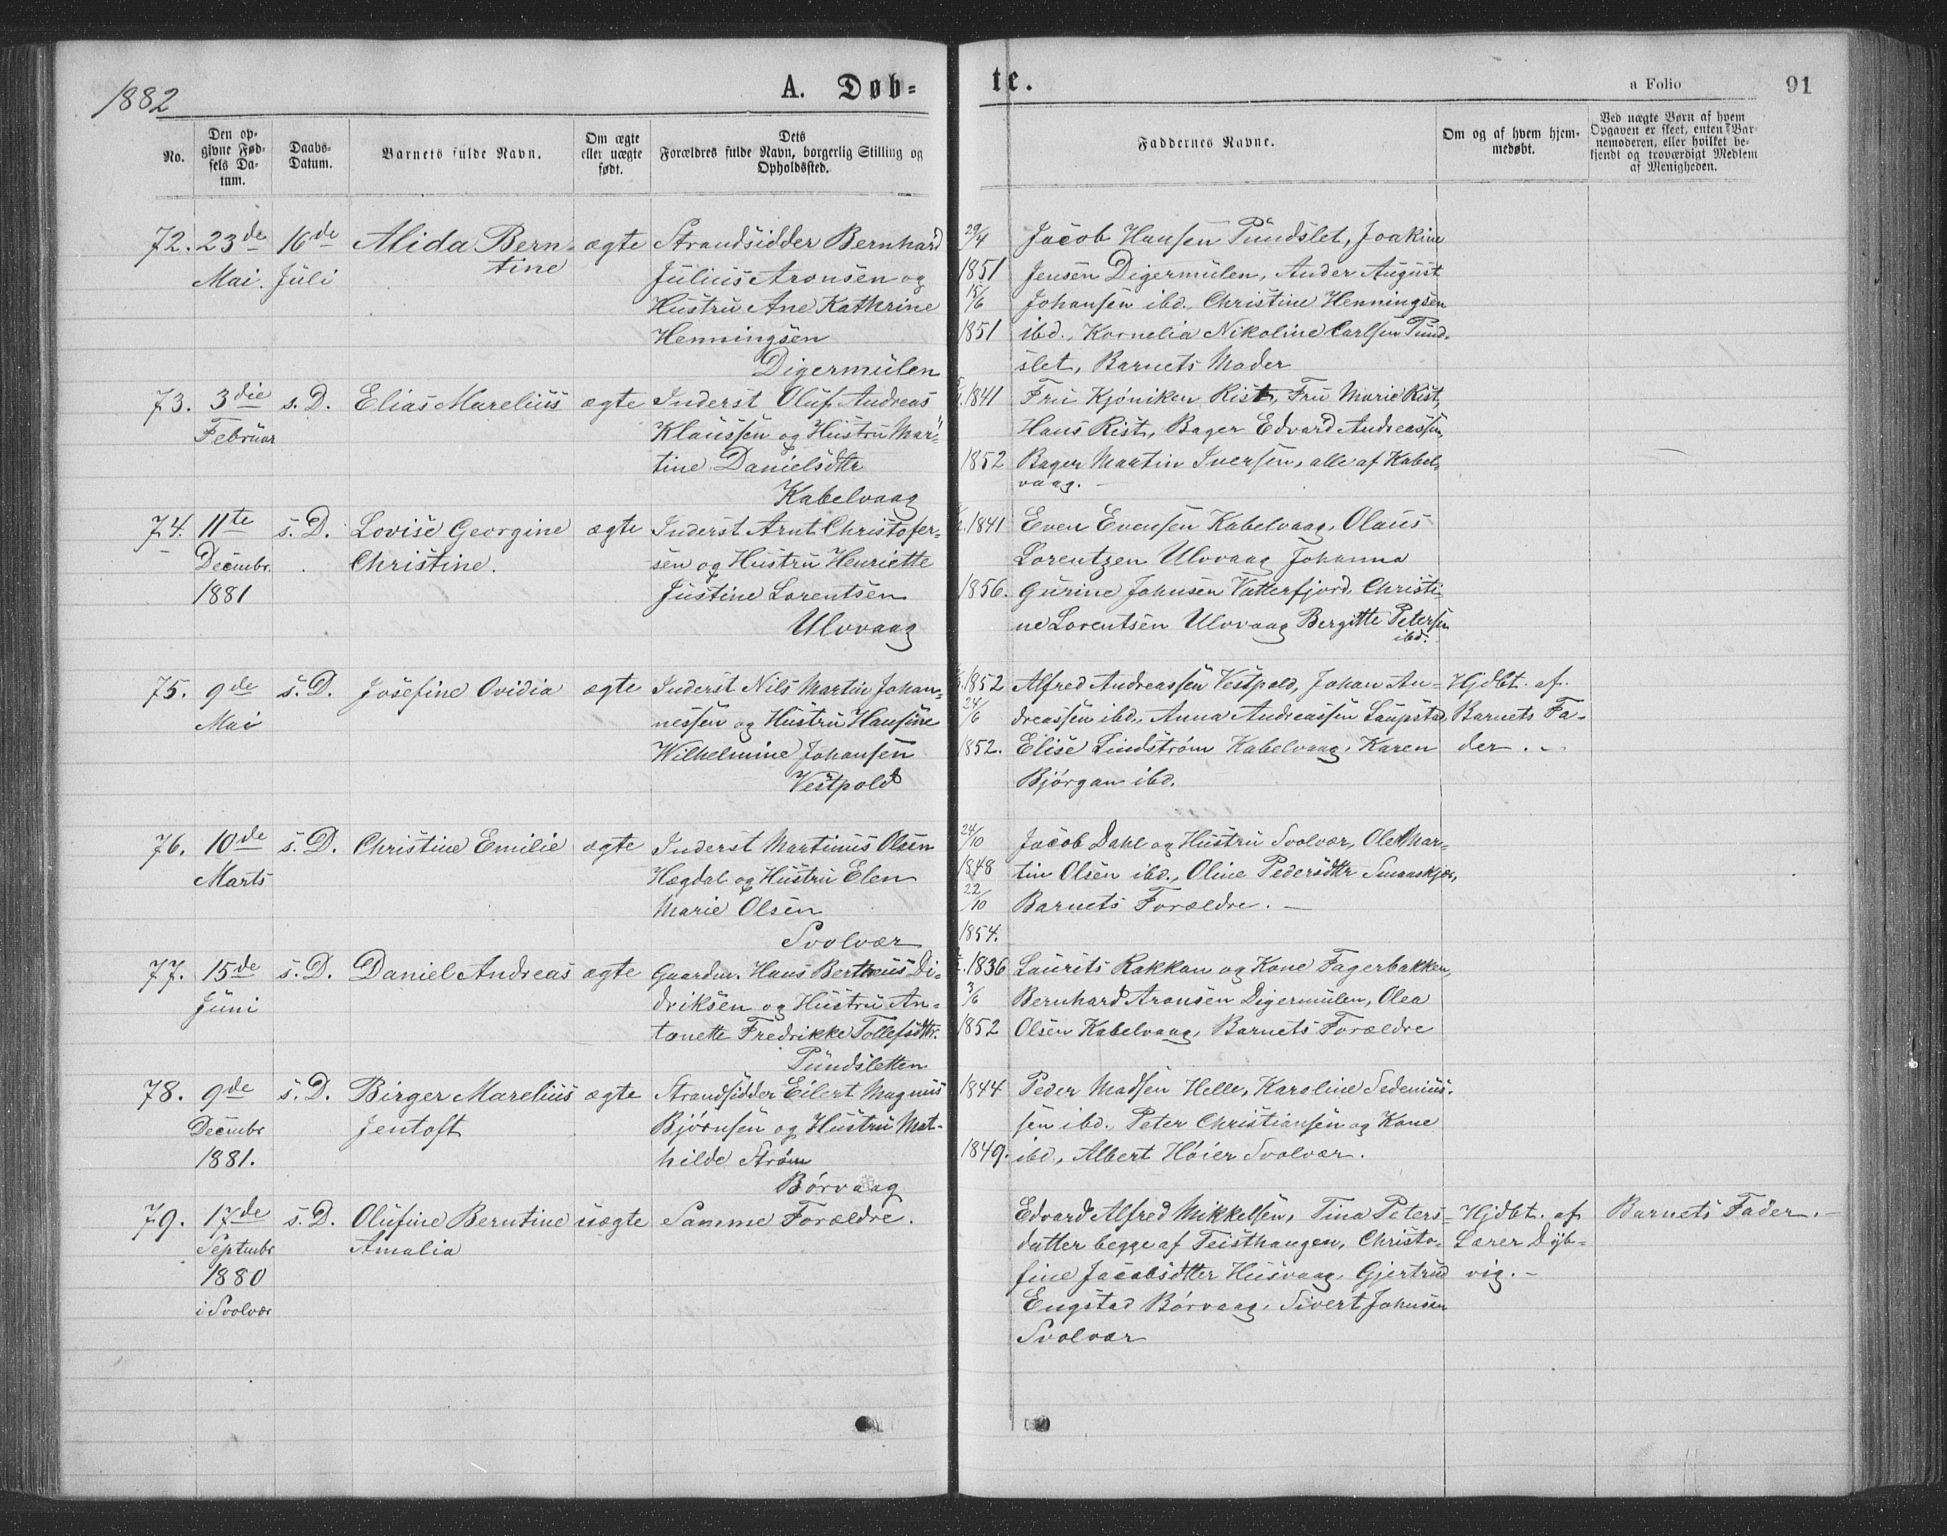 1882
A. Døb=
te.
a Folio
91
No.
Den op-
givne Fød-
sels Da-
tum.
Daabs-
Datum.
Barnets fulde Navn.
Om ægte
eller uægte
født.
Dets
Forældres fulde Navn, borgerlig Stilling og
Opholdssted.
Faddernes Navne.
Om og af hvem hjem-
medøbt.
Ved uægte Børn af hvem
Opgaven er skeet, enten Bar-
nemoderen, eller hvilket be-
kjendt og troværdigt Medlem
af Menigheden.
72. 23de 16de Alida Bern- ægte Strandsidder Bernhard
Mai. Juli tine Julius Aronsen og
Hustru Ane Kathrine
Henningsen
Digermulen
29/4 Jacob Hansen Pundslet, Joakim
1851 Jensen Digermulen, Ander August
15/6 Johansen ibd., Christine Henningsen
1851 ibd., Kornelia Nikoline Carlsen Pund-
slet, Barnets Moder
73. 3die s. D. Elias Marelius ægte Inderst Oluf Andreas
Februar Klaussen og Hustru Mar-
tine Danielsdtr
Kabelvaag
1841 Fru Kjøniken Rist, Fru Marie Rist,
Hans Rist, Bager Edvard Andreassen,
1852 Bager Martin Iversen, alle af Kabel-
vaag.
74. 11te s. D. Lovise Georgine ægte Inderst Arnt Christofer-
Decmbr. Christine. sen og Hustru Henriette
1881 Justine Lorentsen
Ulvvaag
1841 Even Evensen Kabelvaag, Olaus
Lorentzen Ulvvaag Johanna
1856. Gurine Johnsen Vatterfjord, Christi-
ne Lorentsen Ulvvaag Bergitte Petersen
ibd.
75. 9de s. D. Josefine Ovidia ægte Inderst Nils Martin Johan-
Mai nessen og Hustru Hansine
Wilhelmine Johansen
Vestpold
1852 Alfred Andreassen Vestpold, Johan An- Hjdbt. af
24/6 dreassen ibd, Anna Andreassen Laupstad, Barnets Fa-
1852. Elise Lindstrøm Kabelvaag, Karen der.
Bjørgan ibd.
76. 10de s. D. Christine Emilie ægte Inderst Martinus Olsen
Marts Hægdal og Hustru Elen
Marie Olsen
Svolvær
24/10 Jacob Dahl og Hustru Svolvær, Ole Mar-
1848 tin Olsen ibd., Oline Pedersdtr Smaaskjær,
22/10 Barnets Forældre.
1854.
77. 15de s. D. Daniel Andreas ægte Gaardm. Hans Bertheus Di-
Juni driksen og Hustru An-
tonette Fredrikke Tollefsdtr.
Pundsletten
1836 Laurits Rakkan og Kone Fagerbakken,
3/6 Bernhard Aronsen Digermulen, Olea
1852 Olsen Kabelvaag, Barnets Forældre
78. 9de s. D. Birger Marelius ægte Strandsidder Eilert Magnus
Decmbr Jentoft Bjørnsen og Hustru Mat-
1881. hilde Strøm
Børvaag
1844 Peder Madsen Helle, Karoline Sedenius-
sen ibd. Peter Christiansen og Kone
1849. ibd., Albert Høier Svolvær.
79. 17de s. D. Olufine Berntine uægte Samme Forældre.
Septmbr Amalia
1880
i Svolvær
Edvard Alfred Mikkelsen, Tina Peters- Hjdbt. af Barnets Fader.
datter begge af Teisthaugen, Christo- Lærer Dyb-
fine Jacobsdtter Husvaag, Gjertrud vig.
Engstad Børvaag, Sivert Johnsen
Svolvær